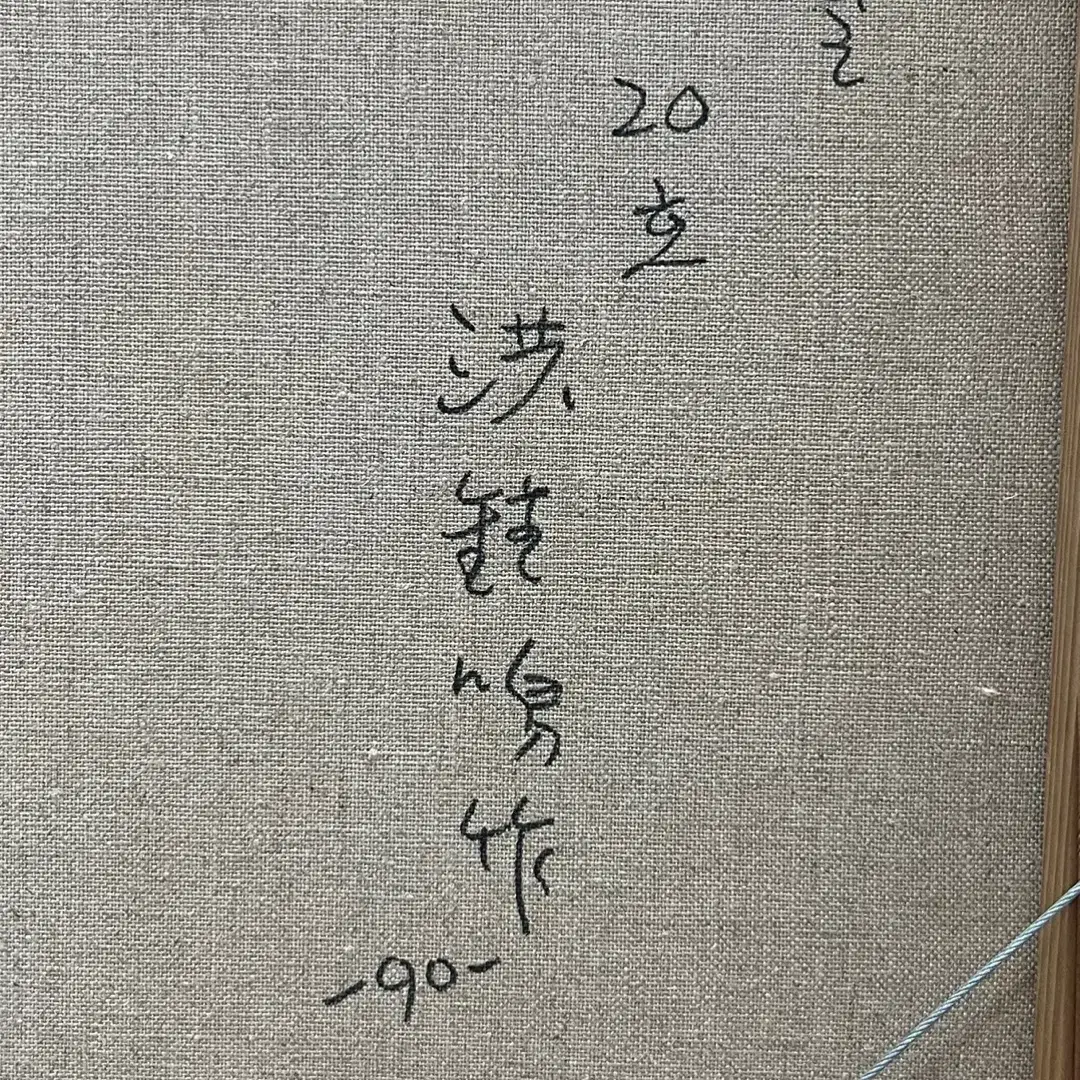 20호
洪鍾鳴作
-90-